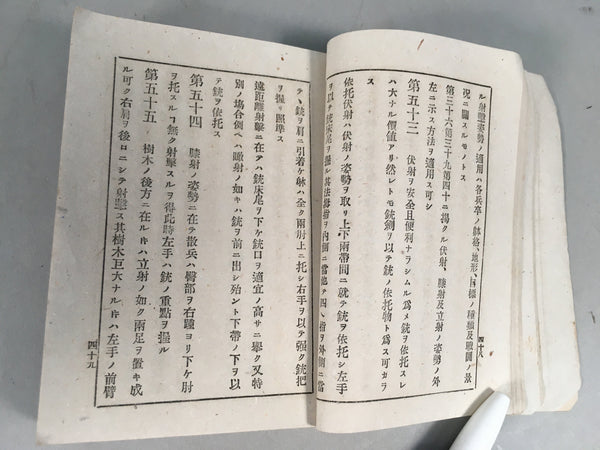 ル射撃姿勢ノ適用ハ各兵卒ノ躰格、地形、目標ノ種類及戰鬪ノ景
況ニ關スルモノトス
第三十六第三十九第四十ニ掲クル伏射、膝射及立射ノ姿勢ノ外
左ニ示ス方法ヲ適用ス可シ
第五十三 伏射ヲ安全且便利ナラシムル爲メ銃ヲ依托スレ
ハ大ナル價値アリ然レトモ銃劍ヲ以テ銃ノ依托物ト爲ス可カラ
ス
依托伏射ハ伏射ノ姿勢ヲ取リ上下兩帶間ニ就テ銃ヲ依托シ左手
ヲ以テ銃床尾ヲ握ル其法拇指ヲ内側ニ當他ノ四指ヲ外側ニ當
四十八
テヽ銃ヲ肩ニ引着ケ躰ハ全ク兩肘上ニ托シ右手ヲ以テ强ク銃把
ヲ握リ照準ス
遠距離射撃ニ在テハ銃床尾ヲ下ケ銃口ヲ適宜ノ高サニ擧ク又特
別ノ塲合例ヘハ瞰射ノ如キハ銃ヲ前ニ出シ殆ント下帶ノ下ヲ以
テ銃ヲ依托ス
第五十四 膝射ノ姿勢ニ在テ散兵ハ臀部ヲ右踵ヨリ下ケ肘
ヲ托スルコ無ク射撃スルヲ得此時左手ハ銃ノ重點ヲ握ル
第五十五 樹木ノ後方ニ在ルトキハ立射ノ如ク兩足ヲ置キ成
ル可ク右肩ヲ後ロニシテ射撃ス其樹木巨大ナルトキハ左手ノ前臂
四十九